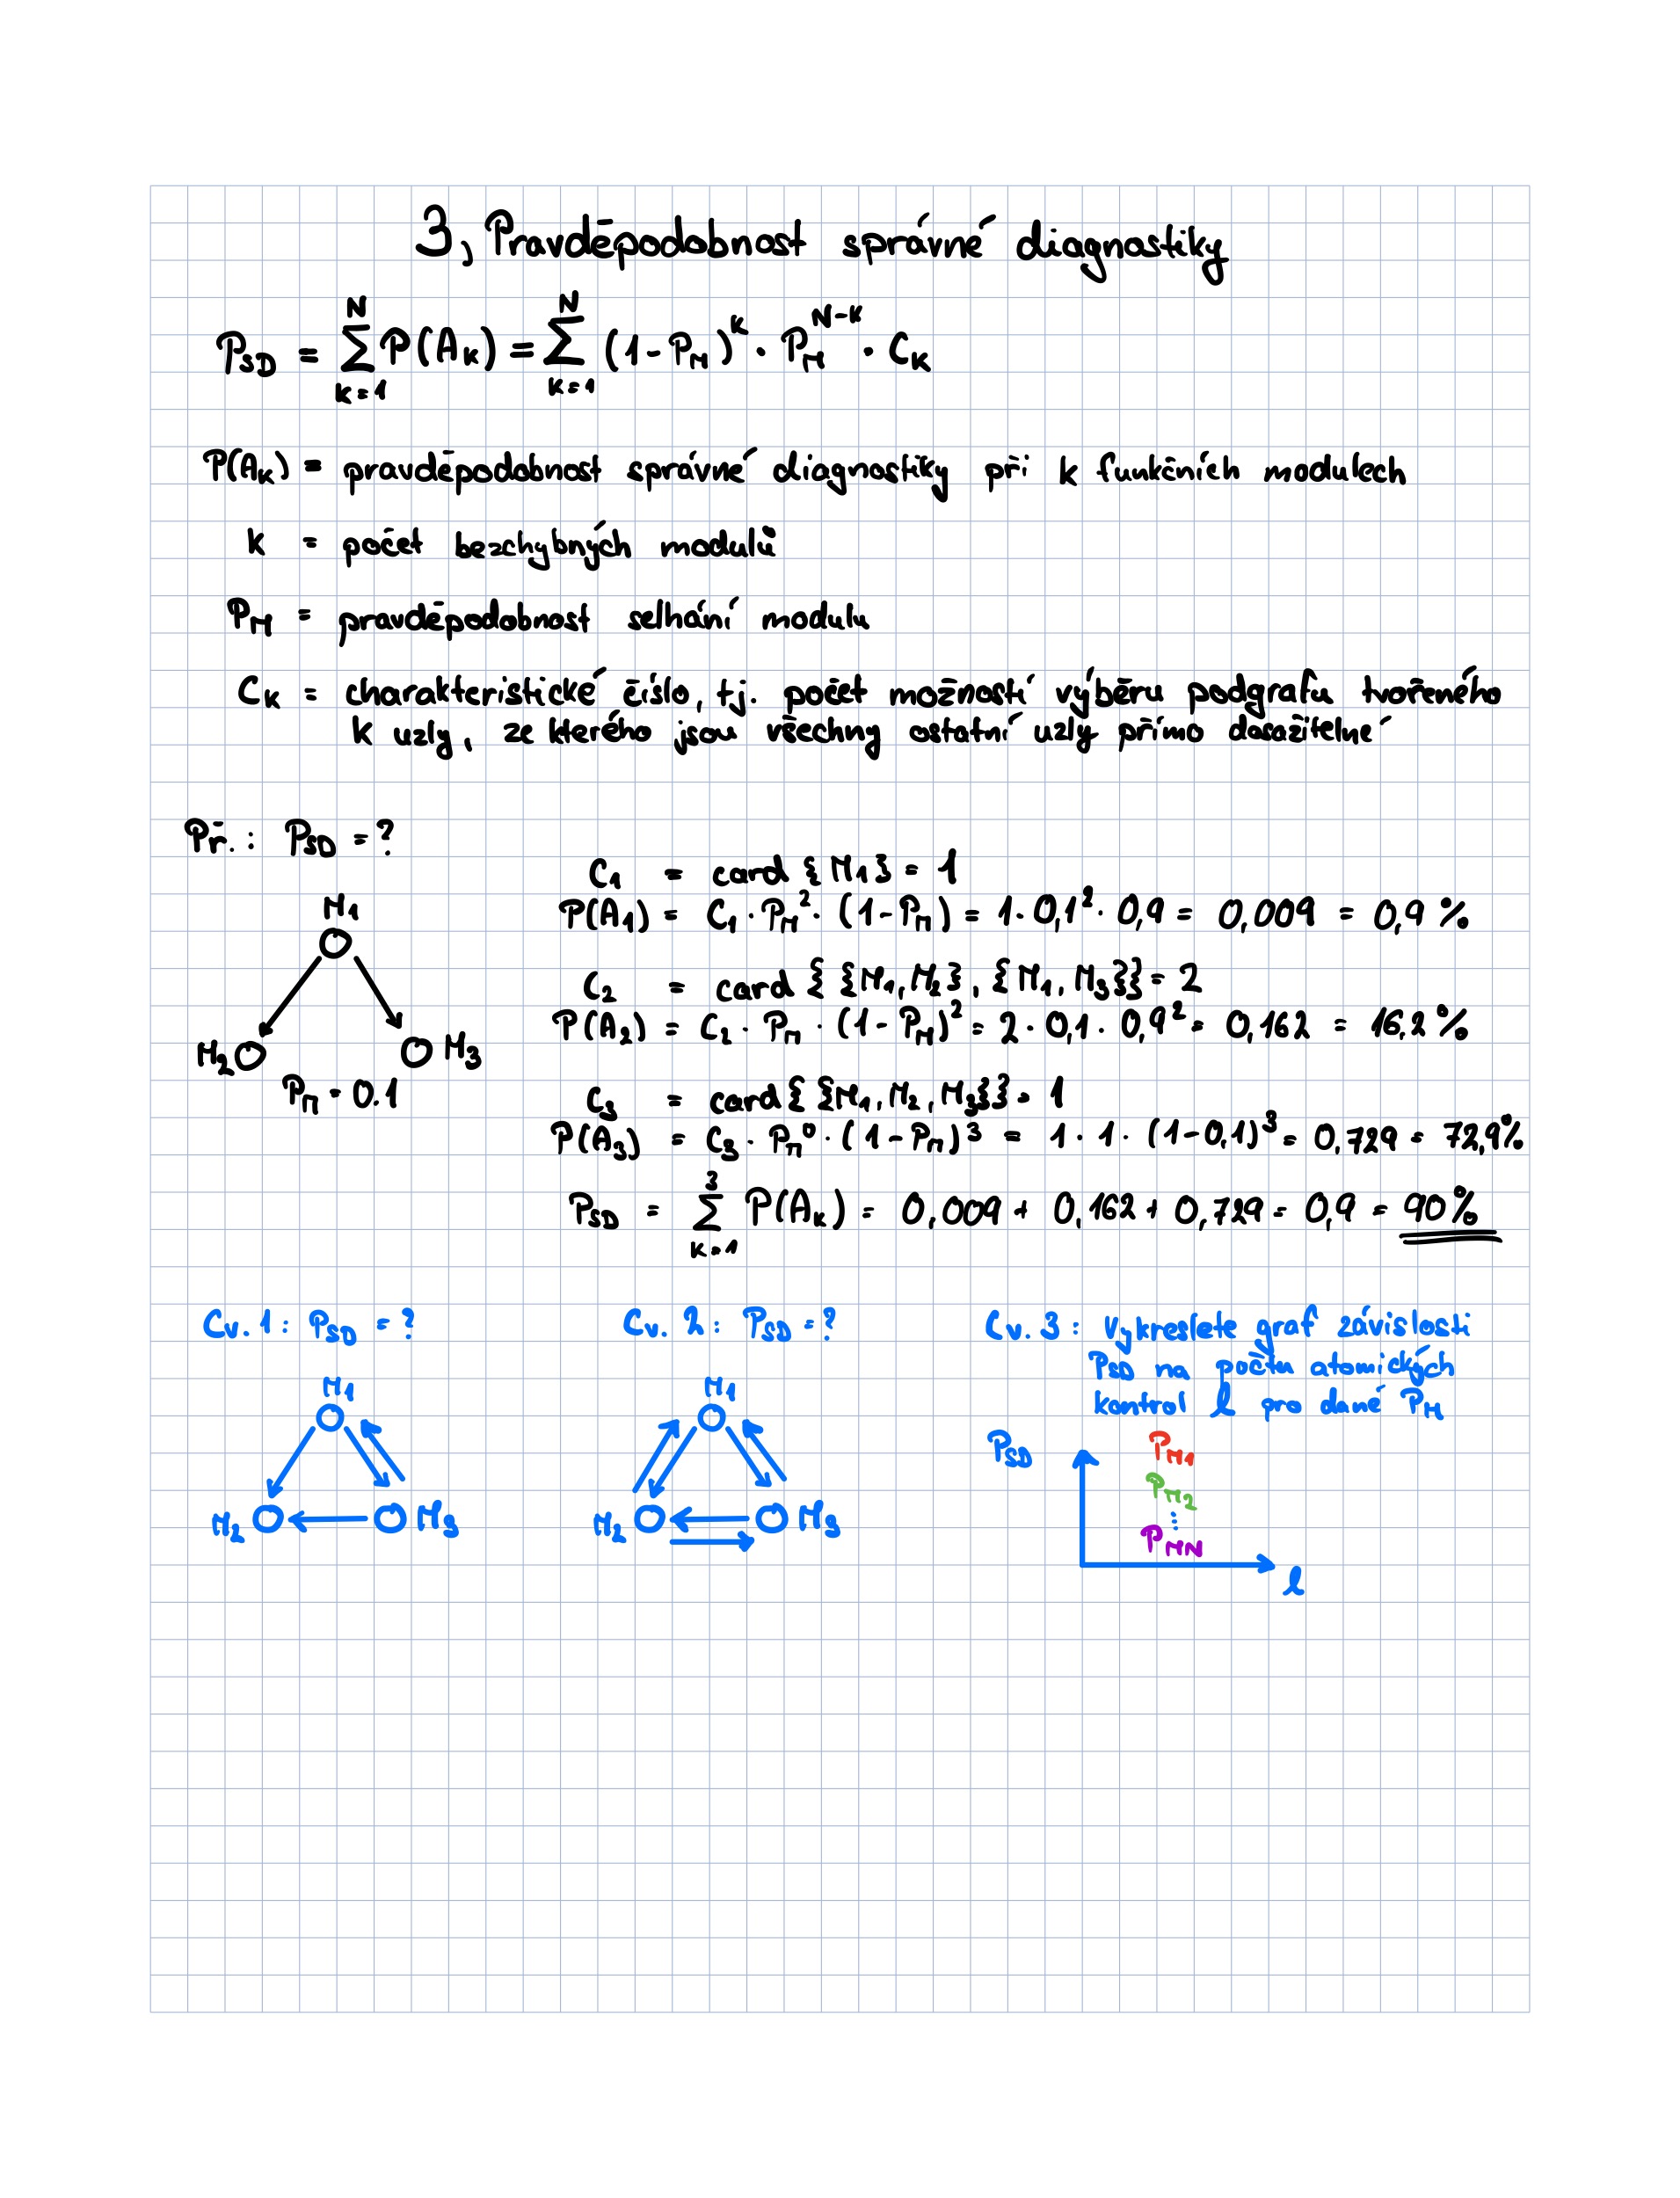 3, Pravděpodobnost správné diagnostiky
P_SD = ∑_{k=1}^{N} P(A_k) = ∑_{k=1}^{N} (1-P_M)^k · P_M^{N-k} · C_k
P(A_k) = pravděpodobnost správné diagnostiky při k funkčních modulech
k = počet bezchybných modulů
P_M = pravděpodobnost selhání modulu
C_k = charakteristické číslo, tj. počet možností výběru podgrafu tvořeného
k uzly, ze kterého jsou všechny ostatní uzly přímo dosažitelné
Př.: P_SD = ?
M_1
M_2
M_3
P_M = 0.1
C_1 = card {M_1} = 1
P(A_1) = C_1 · P_M^2 · (1-P_M) = 1 · 0,1^2 · 0,9 = 0,009 = 0,9 %
C_2 = card { {M_1, M_2}, {M_1, M_3}} = 2
P(A_2) = C_2 · P_M · (1-P_M)^2 = 2 · 0,1 · 0,9^2 = 0,162 = 16,2 %
C_3 = card { {M_1, M_2, M_3}} = 1
P(A_3) = C_3 · P_M^0 · (1-P_M)^3 = 1 · 1 · (1-0,1)^3 = 0,729 = 72,9%
P_SD = ∑_{k=1}^{3} P(A_k) = 0,009 + 0,162 + 0,729 = 0,9 = 90%
Cv. 1: P_SD = ?
M_1
M_2
M_3
Cv. 2: P_SD = ?
M_1
M_2
M_3
Cv. 3: Vykreslete graf závislosti
P_SD na počtu atomických
kontrol l pro dané P_M
P_SD
P_M1
P_M2
⋮
P_MN
l